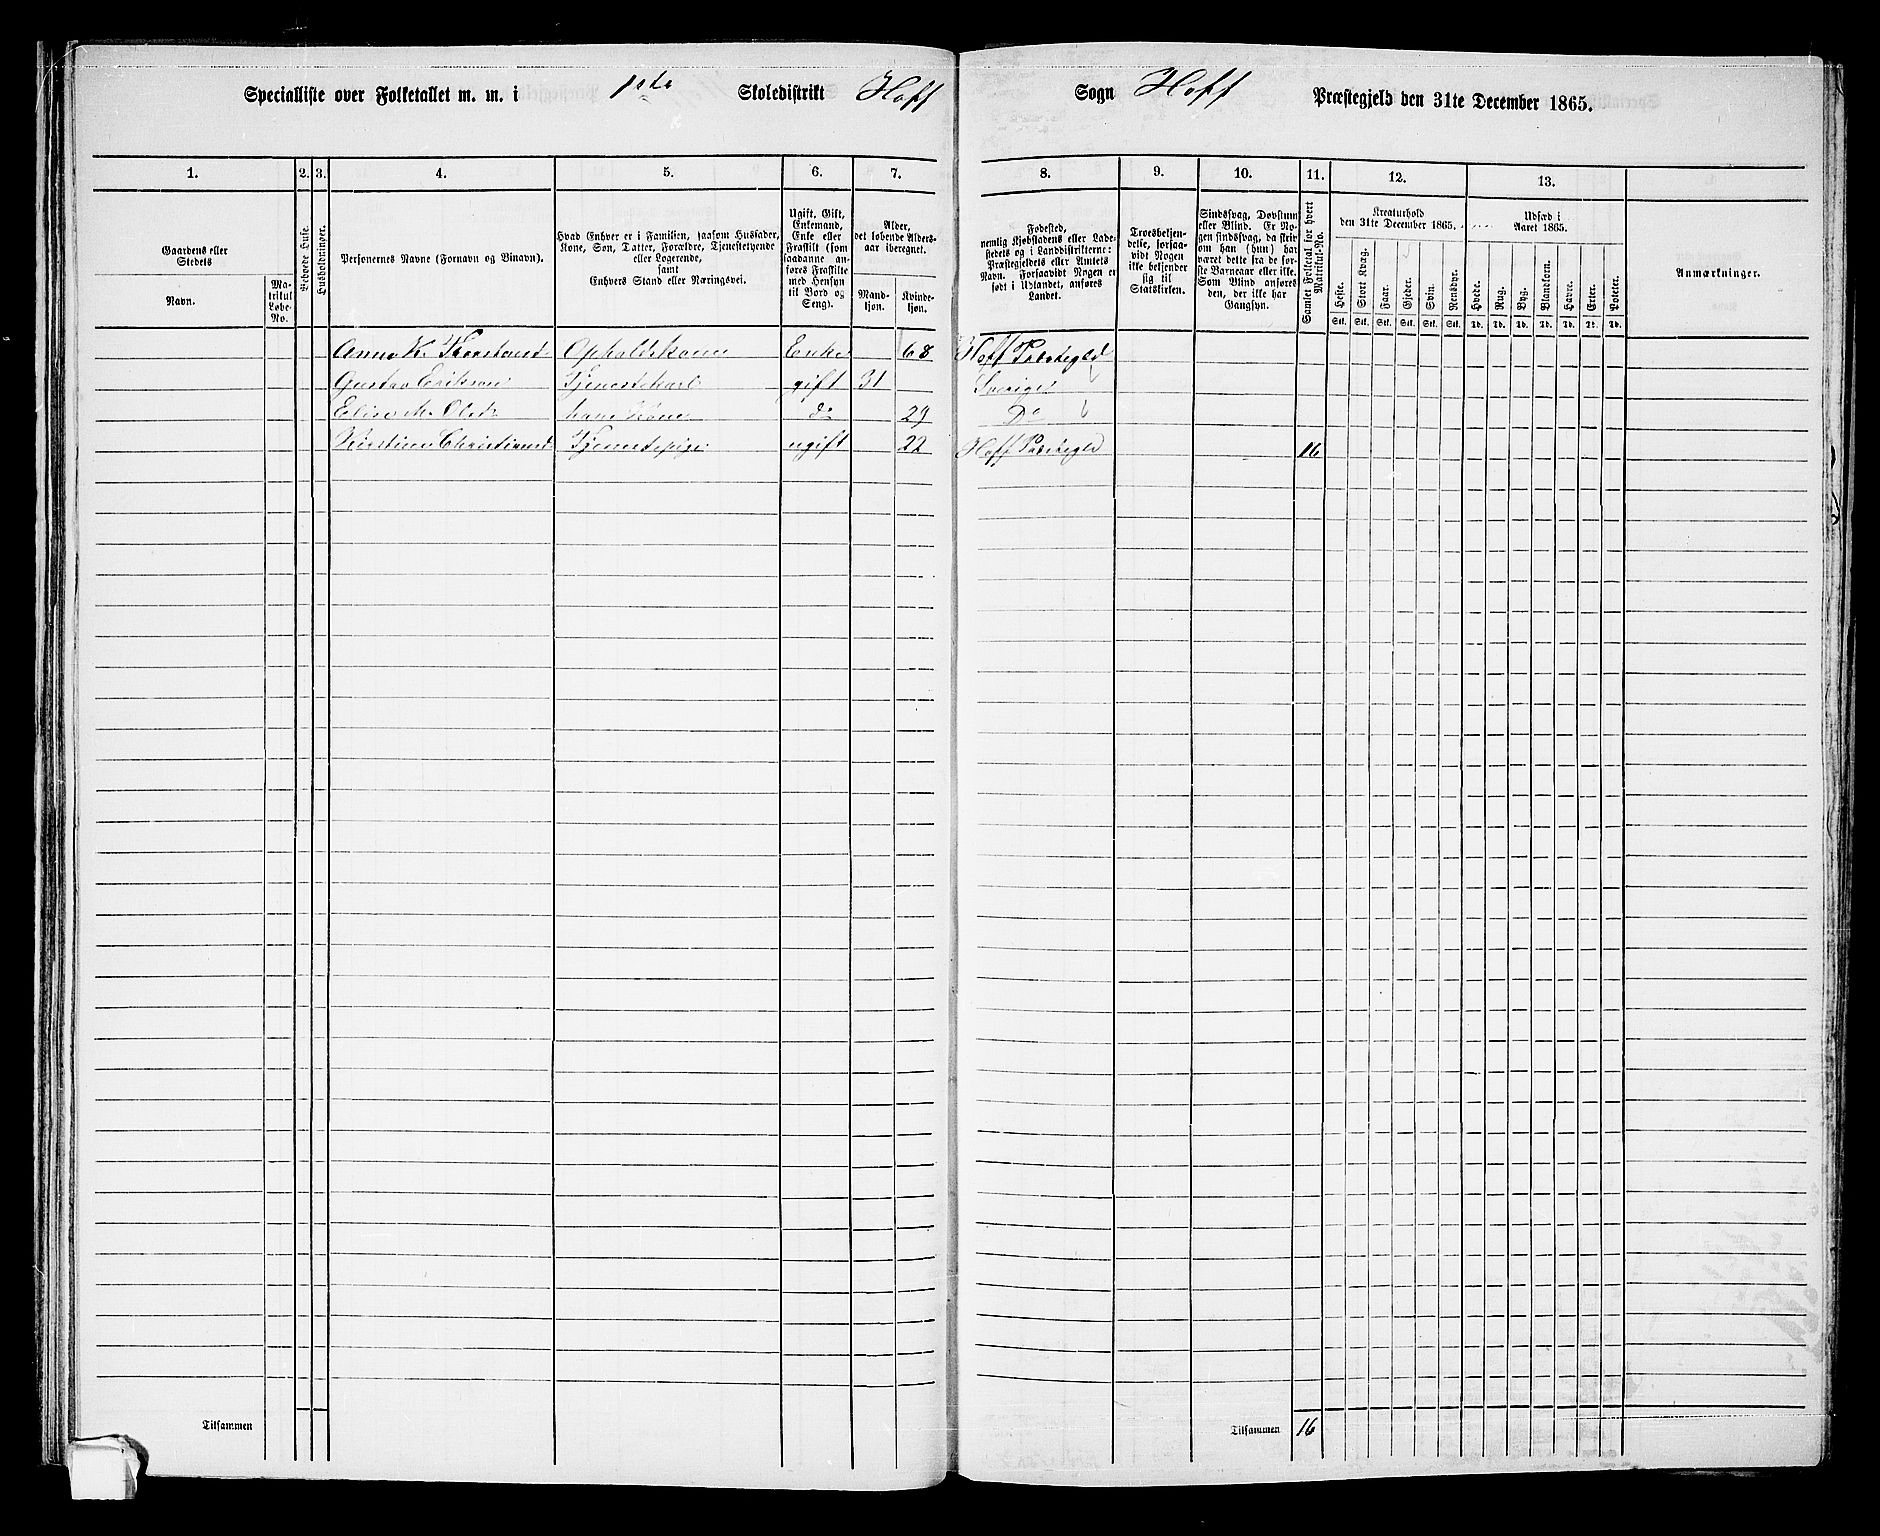 Specialliste over Folketallet m. m. i 1ste Skoledistrikt Hoff Sogn Hoff Præstegjeld den 31te December 1865.
1. 2. 3. 4. 5. 6. 7. 8. 9. 10. 11. 12. 13.
Gaardens eller Stedets
Navn.
Matrikul Løbe-No.
Beboede Huse.
Husholdninger.
Personernes Navne (Fornavn og Binavn).
Hvad Enhver er i Familien, saasom Husfader, Kone, Søn, Datter, Forældre, Tjenestetyende eller Logerende, samt Enhvers Stand eller Næringsvei.
Ugift, Gift, Enkemand, Enke eller Fraskilt (som saadanne anføres Fraskilte med Hensyn til Bord og Seng).
Alder, det løbende Aldersaar iberegnet.
Mandkjøn.
Kvindekjøn.
Fødested, nemlig Kjøbstadens eller Ladestedets og i Landdistrikterne: Præstegjeldets eller Amtets Navn. Forsaavidt Nogen er født i Udlandet, anføres Landet.
Troesbekjendelse, forsaavidt Nogen ikke bekjender sig til Statskirken.
Sindssvag, Døvstum eller Blind. Er Nogen sindssvag, da skrives om han (hun) har været dette fra de første Barneaar eller ikke. Som Blind anføres den, der ikke har Gangsyn.
Samlet Folketal for hvert Matrikul-No.
Kreaturhold den 31te December 1865.
Heste. Stort Kvæg. Faar. Gjeder. Svin. Rensdyr.
Stk. Stk. Stk. Stk. Stk. Stk.
Udsæd i Aaret 1865.
Hvede. Rug. Byg. Blandkorn. Havre. Erter. Poteter.
Td. Td. Td. Td. Td. Td. Td.
Anmærkninger.
Anne K. Enke 68 Hoff
Gustav Erikson Tjenestekarl gift 31 Sverige
Olsd. hans Kone do 29 Do
Christiansd. Tjenestepige ugift 22 Hoff 16
Tilsammen Tilsammen 16